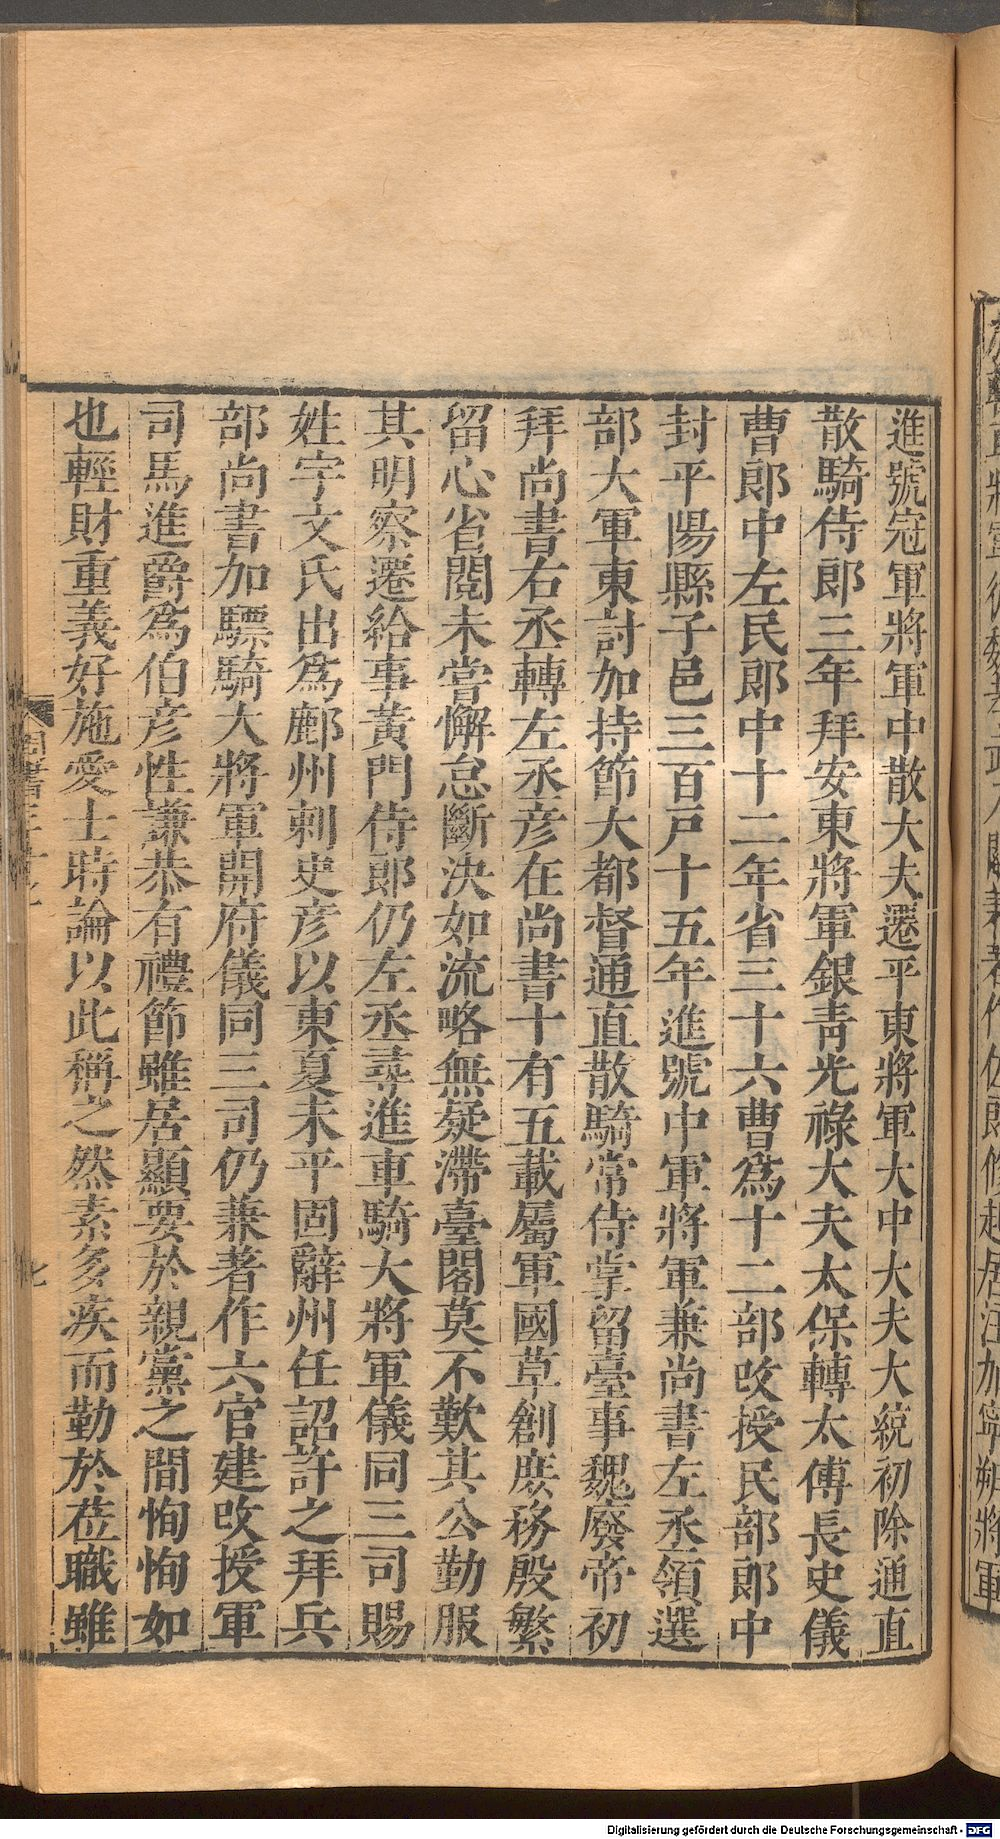 進號冠軍將軍中散大夫遷平東將軍大中大夫大統初除通直
散騎侍郎三年拜安東將軍銀青光祿大夫太保轉太傅長史儀
曹郎中左民郎中十二年省三十六曹爲十二部改授民部郎中
封平陽縣子邑三百戸十五年進號中軍將軍兼尚書左丞領選
部大軍東討加持節大都督通直散騎常侍掌留臺事魏廢帝初
拜尚書右丞轉左丞彥在尚書十有五載屬軍國草創庶務殷繁
留心省閱未嘗懈怠斷決如流略無疑滯臺閣莫不歎其公勤服
其明察遷給事黃門侍郎仍左丞尋進車騎大將軍儀同三司賜
姓宇文氏出爲鄜州刺史彥以東夏未平固辭州任詔許之拜兵
部尚書加驃騎大將軍開府儀同三司仍兼著作六官建改授軍
司馬進爵爲伯彥性謙恭有禮節雖居顯要於親黨之間恂恂如
也輕財重義好施愛士時論以此稱之然素多疾而勤於莅職雖
周書三十七
七
Digitalisierung gefördert durch die Deutsche Forschungsgemeinschaft - DFG